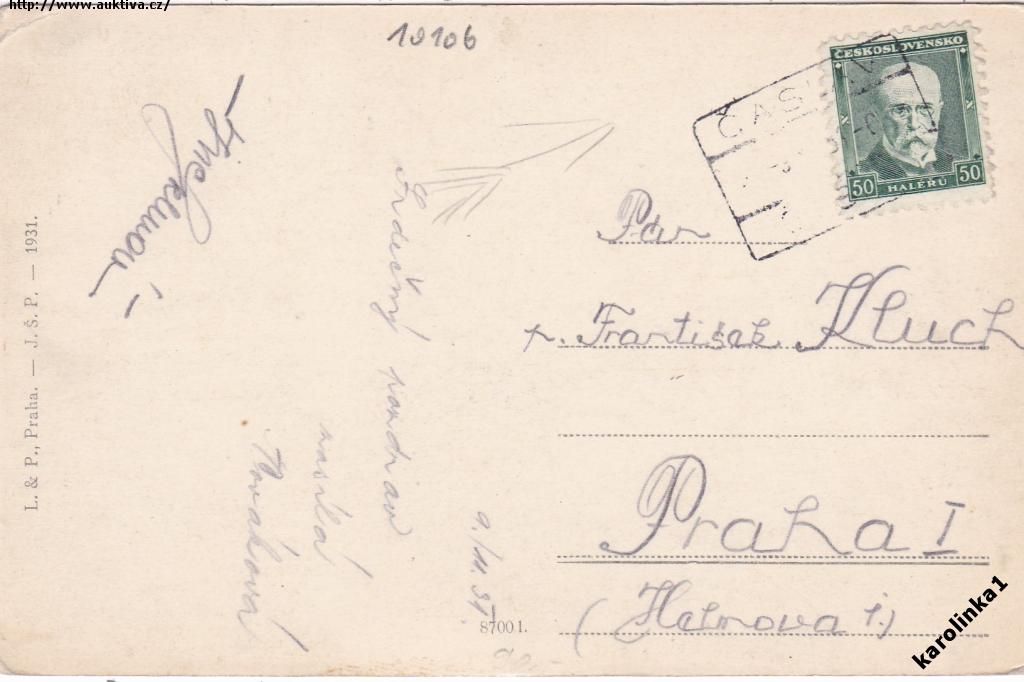 http://www.auktiva.cz/
10106
ČESKOSLOVENSKO
50 HALÉŘŮ 50
ČASLAV
Pan
p. František Kluch
Praha I
Srdečný pozdrav
zasílá
Nováková
9./11.31.
L. & P., Praha. — J. Š. P. — 1931.
87001.
karolinka1